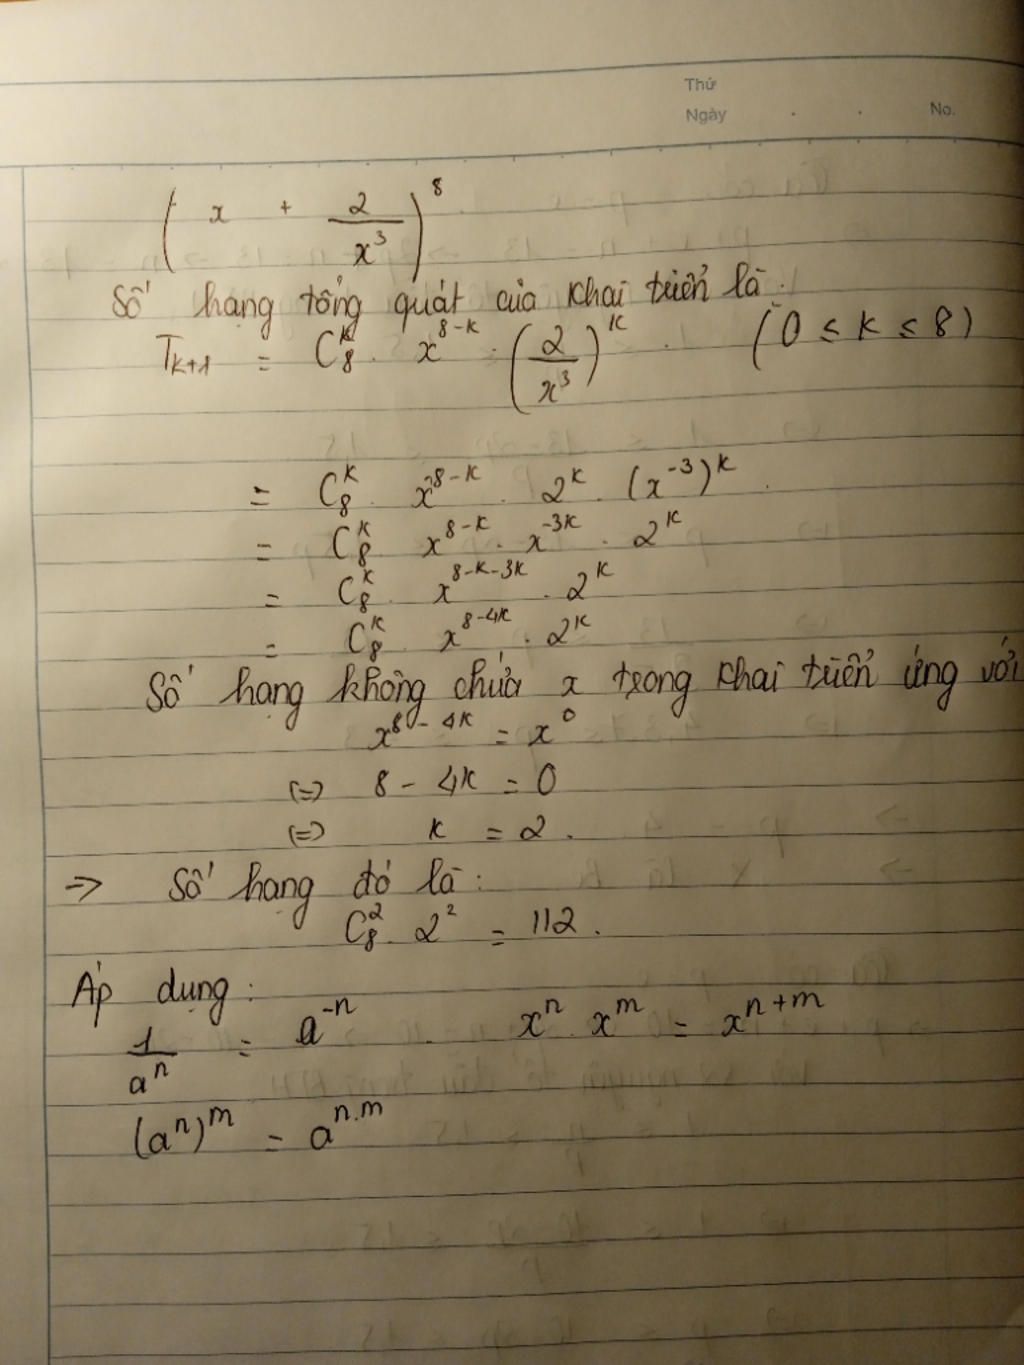 Thứ
Ngày . . No.
( x + 2/x³ )⁸
Số hạng tổng quát của khai triển là:
Tₖ₊₁ = C₈ᵏ . x⁸⁻ᵏ . (2/x³)ᵏ . (0 ≤ k ≤ 8)
= C₈ᵏ . x⁸⁻ᵏ . 2ᵏ . (x⁻³)ᵏ .
= C₈ᵏ . x⁸⁻ᵏ . x⁻³ᵏ . 2ᵏ
= C₈ᵏ . x⁸⁻ᵏ⁻³ᵏ . 2ᵏ
= C₈ᵏ . x⁸⁻⁴ᵏ . 2ᵏ
Số hạng không chứa x trong khai triển ứng với
x⁸⁻⁴ᵏ = x⁰
(=) 8 - 4k = 0
(=) k = 2 .
=> Số hạng đó là :
C₈² . 2² = 112 .
Áp dụng :
1/aⁿ = a⁻ⁿ . xⁿ . xᵐ = xⁿ⁺ᵐ
(aⁿ)ᵐ = aⁿ·ᵐ